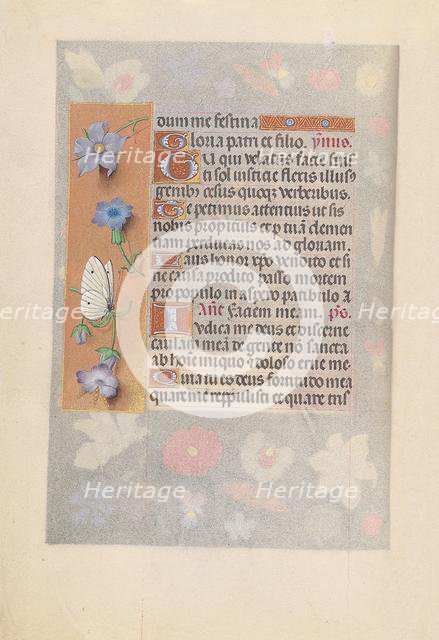 dum me festina
Gloria patri et filio. ymus.
Qui velatus facie fuisti
sol iusticie flexis illusus
genibus cesus quoqz verberibus.
Te petimus attentius ut sis
nobis propitius et p tuā clemen
tiam perducas nos ad gloriam.
Laus honor xpo vendito et si
ne causa prodito passo mortem
pro populo in aspero patibulo
Ane faciem meam. ps.
Iudica me deus et discerne
causam meā de gente nō sancta
ab hoīe iniquo et doloso erue me
Quia tu es deus fortitudo mea
quare me reppulisti et quare tris
Heritage
Heritage
Heritage
Heritage
Heritage
Heritage
Heritage
Heritage